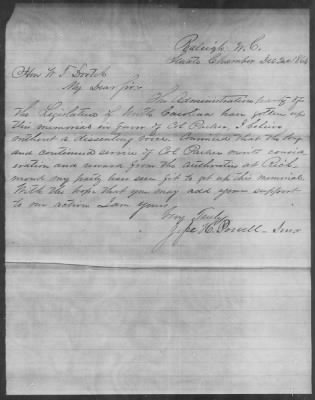 Raleigh N.C.
Senate Chamber Dec 20 1864
Hon W T Dortch
My Dear Sir
The Administration party of
the Legislature of North Carolina have gotten up
this memorial in favor of Col Parker. I believe
without a dissenting voice. Satisfied that the long
and continued service of Col Parker merits consid
eration and reward from the authorities at Rich
mond my party have seen fit to get up this memorial.
With the hope that you may add your support
to our action I am yours
Very Truly
H. Powell